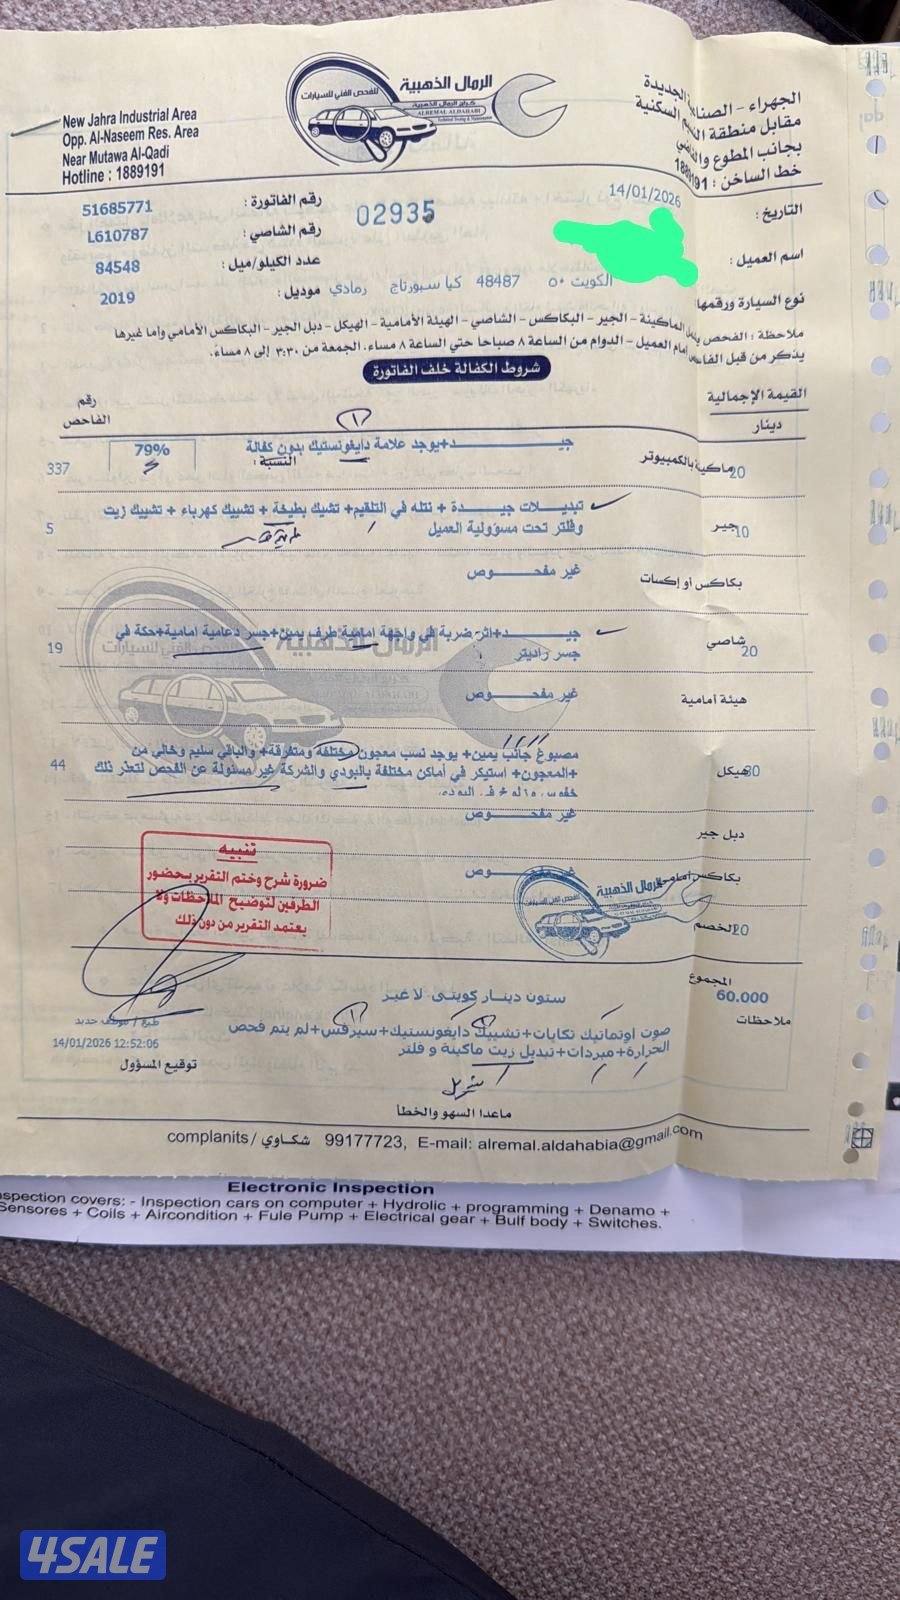 New Jahra Industrial Area
Opp. Al-Naseem Res. Area
Near Mutawa Al-Qadi
Hotline : 1889191
الرمال الذهبية
للفحص الفني للسيارات
كراج الرمال الذهبية
ALREMAL ALDAHABI
Technical Testing & Maintenance
الجهراء - الصناعية الجديدة
مقابل منطقة النسيم السكنية
بجانب المطوع والقاضي
خط الساخن : 1889191
التاريخ : 14/01/2026
رقم الفاتورة : 51685771
02935
اسم العميل :
رقم الشاصي : L610787
عدد الكيلو/ميل : 84548
نوع السيارة ورقمها الكويت ٥٠ 48487 كيا سبورتاج رمادي
موديل : 2019
ملاحظة : الفحص يشمل الماكينة - الجير - البكاكس - الشاصي - الهيئة الأمامية - الهيكل - دبل الجير - البكاكس الأمامي واما غيرها
يذكر من قبل الفاحص أمام العميل - الدوام من الساعة ٨ صباحا حتي الساعة ٨ مساء. الجمعة من ٣:٣٠ إلى ٨ مساء.
شروط الكفالة خلف الفاتورة
القيمة الإجمالية
دينار
رقم
الفاحص
ماكينة بالكمبيوتر 20
جيـــــد+يوجد علامة دايغونستيك بدون كفالة
النسبة :
79%
337
جير 10
تبديلات جيـــدة + نتله في التلقيم+ تشيك بطيخة + تشييك كهرباء + تشييك زيت
وفلتر تحت مسؤولية العميل
5
بكاكس او إكسات
غير مفحـــوص
شاصي 20
جيـــــد+اثر ضربة في واجهة امامية طرف يمين+جسر دعامية امامية+حكة في
جسر راديتر
19
هيئة أمامية
غير مفحـــوص
هيكل 30
مصبوغ جانب يمين+ يوجد نسب معجون مختلفة ومتفرقة+ والباقي سليم وخالي من
المعجون+ استيكر في أماكن مختلفة بالبودي والشركة غير مسئولة عن الفحص لتعذر ذلك+
44
دبل جير
غير مفحـــوص
بكاكس امامي
غير مفحـــوص
الخصم 20
تنبيه
ضرورة شرح وختم التقرير بحضور
الطرفين لتوضيح الملاحظات ولا
يعتمد التقرير من دون ذلك
الرمال الذهبية
المجموع
60.000
ستون دينار كويتى لا غير
ملاحظات
صوت اوتماتيك تكايات+تشييك دايغونستيك+سيرفس+لم يتم فحص
الحرارة+مبردات+تبديل زيت ماكينة و فلتر
14/01/2026 12:52:06
توقيع المسؤول
ماعدا السهو والخطأ
complanits / شكاوي 99177723, E-mail: alremal.aldahabia@gmail.com
Electronic Inspection
nspection covers: - Inspection cars on computer + Hydrolic + programming + Denamo +
Sensores + Coils + Aircondition + Fule Pump + Electrical gear + Bulf body + Switches.
4SALE